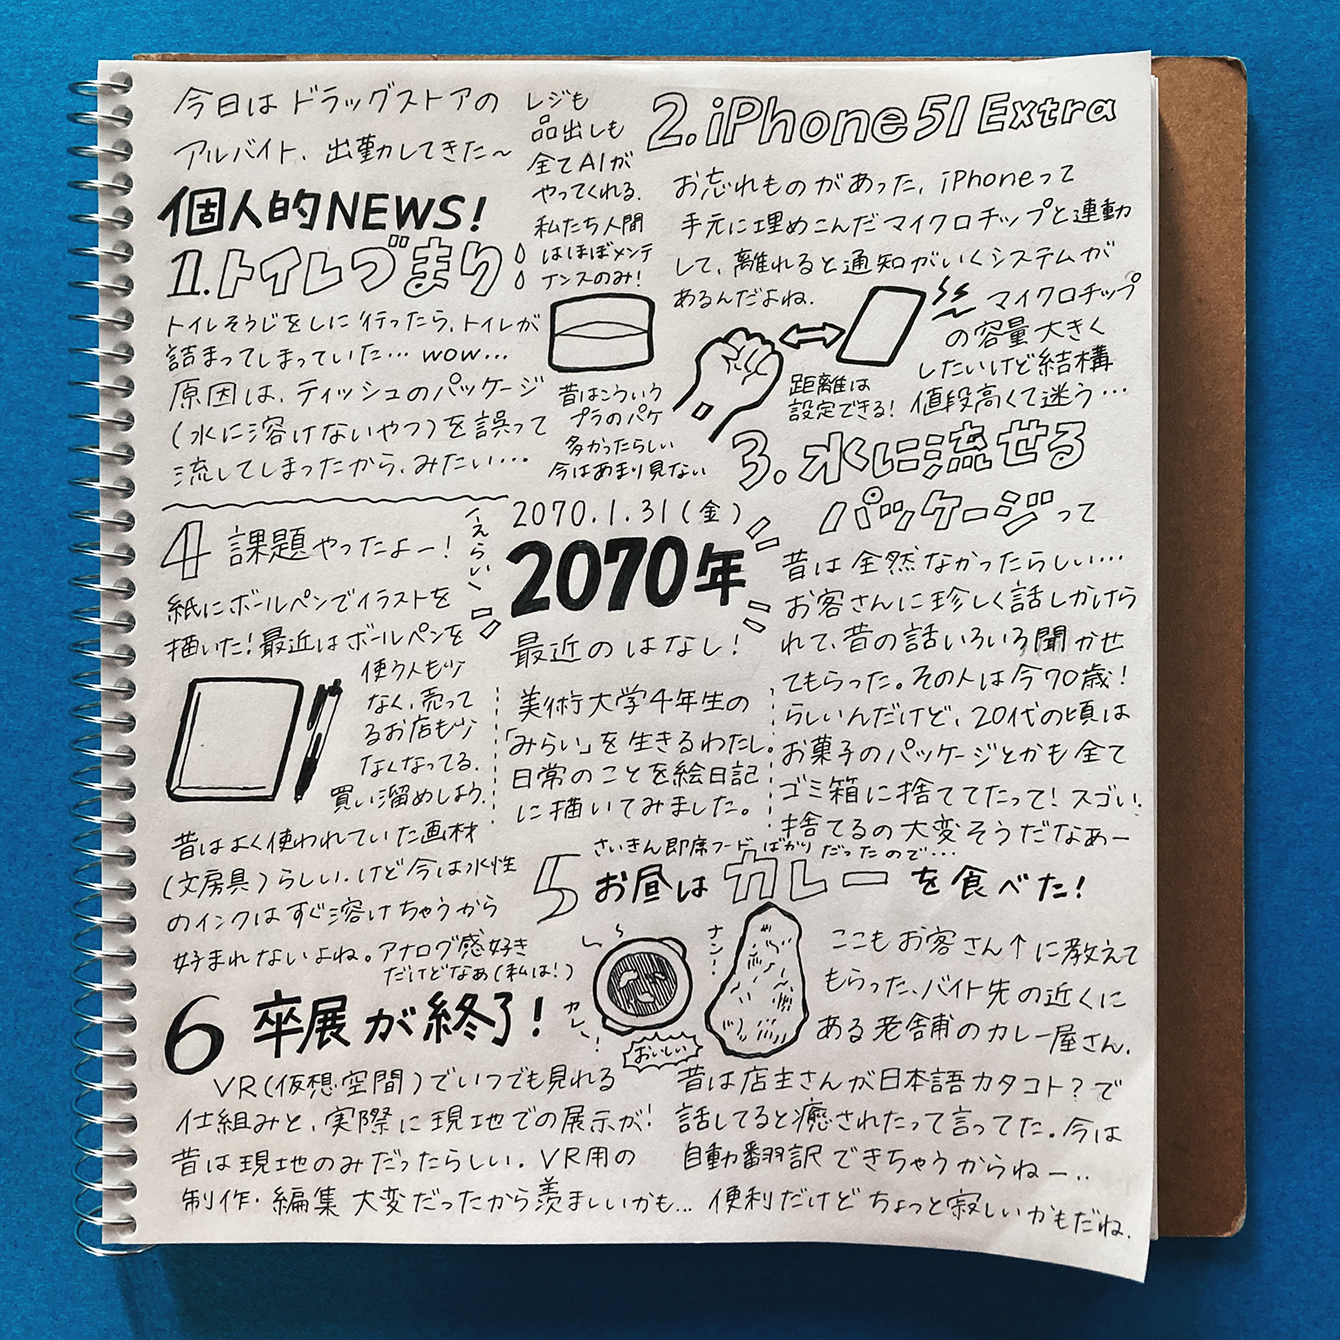 今日はドラッグストアの
アルバイト、出勤してきた〜
個人的NEWS!
1.トイレづまり
トイレそうじをしに行ったら、トイレが
詰まってしまっていた… wow…
原因は、ティッシュのパッケージ
(水に溶けないやつ)を誤って
流してしまったから、みたい…
レジも
品出しも
全てAIが
やってくれる.
私たち人間
はほぼメンテ
ナンスのみ!
昔はこういう
プラのパケ
多かったらしい
今はあまり見ない
2.iPhone51Extra
お忘れものがあった, iPhoneって
手元に埋めこんだマイクロチップと連動
して、離れると通知がいくシステムが
あるんだよね.
マイクロチップ
の容量大きく
したいけど結構
値段高くて迷う…
距離は
設定できる!
3.水に流せる
パッケージって
昔は全然なかったらしい…
お客さんに珍しく話しかけら
れて、昔の話いろいろ聞かせ
てもらった。その人は今70歳!
らしいんだけど、20代の頃は
お菓子のパッケージとかも全て
ゴミ箱に捨ててたって!スゴい.
捨てるの大変そうだなあー
2070.1.31(金)
2070年
最近のはなし!
美術大学4年生の
「みらい」を生きるわたし。
日常のことを絵日記
に描いてみました。
4 課題やったよー!
(えらい)
紙にボールペンでイラストを
描いた!最近はボールペンを
使う人も少
なく、売って
るお店も少
なくなってる.
買い溜めしよう.
昔はよく使われていた画材
(文房具)らしい.けど今は水性
のインクはすぐ溶けちゃうから
好まれないよね。アナログ感好き
だけどなぁ(私は!)
さいきん即席フードばかりだったので…
5 お昼はカレーを食べた!
カレー
おいしい
ナン…
ここもお客さん↑に教えて
もらった、バイト先の近くに
ある老舗のカレー屋さん.
昔は店主さんが日本語カタコト?で
話してると癒されたって言ってた。今は
自動翻訳できちゃうからねー..
便利だけどちょっと寂しいかもだね.
6 卒展が終了!
VR(仮想空間)でいつでも見れる
仕組みと、実際に現地での展示が!
昔は現地のみだったらしい. VR用の
制作・編集大変だったから羨ましいかも…